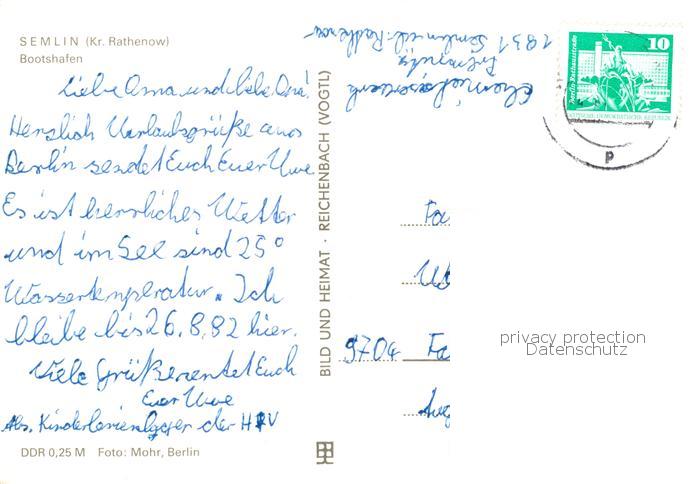 SEMLIN (Kr. Rathenow)
Bootshafen
Liebe Oma und liebe Oma!
Herzlich Urlaubsgrüße aus
Berlin sendet Euch Euer Uwe
Es ist herrliches Wetter
und im See sind 25°
Wassertemperatur. Ich
bleibe bis 26.8.82 hier.
Viele Grüße sendet Euch
Euer Uwe
Abs. Kinderferienlager der
DDR 0,25 M Foto: Mohr, Berlin
BILD UND HEIMAT · REICHENBACH (VOGTL)
Chemiefaserwerk
Premnitz
1831 Semlin
10
Berlin, Rathausstraße
DEUTSCHE DEMOKRATISCHE REPUBLIK
p
Fa
9704 Fa
privacy protection
Datenschutz